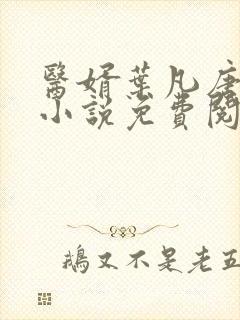 醫婿葉凡唐
小說免費閱
鵝又不是老五